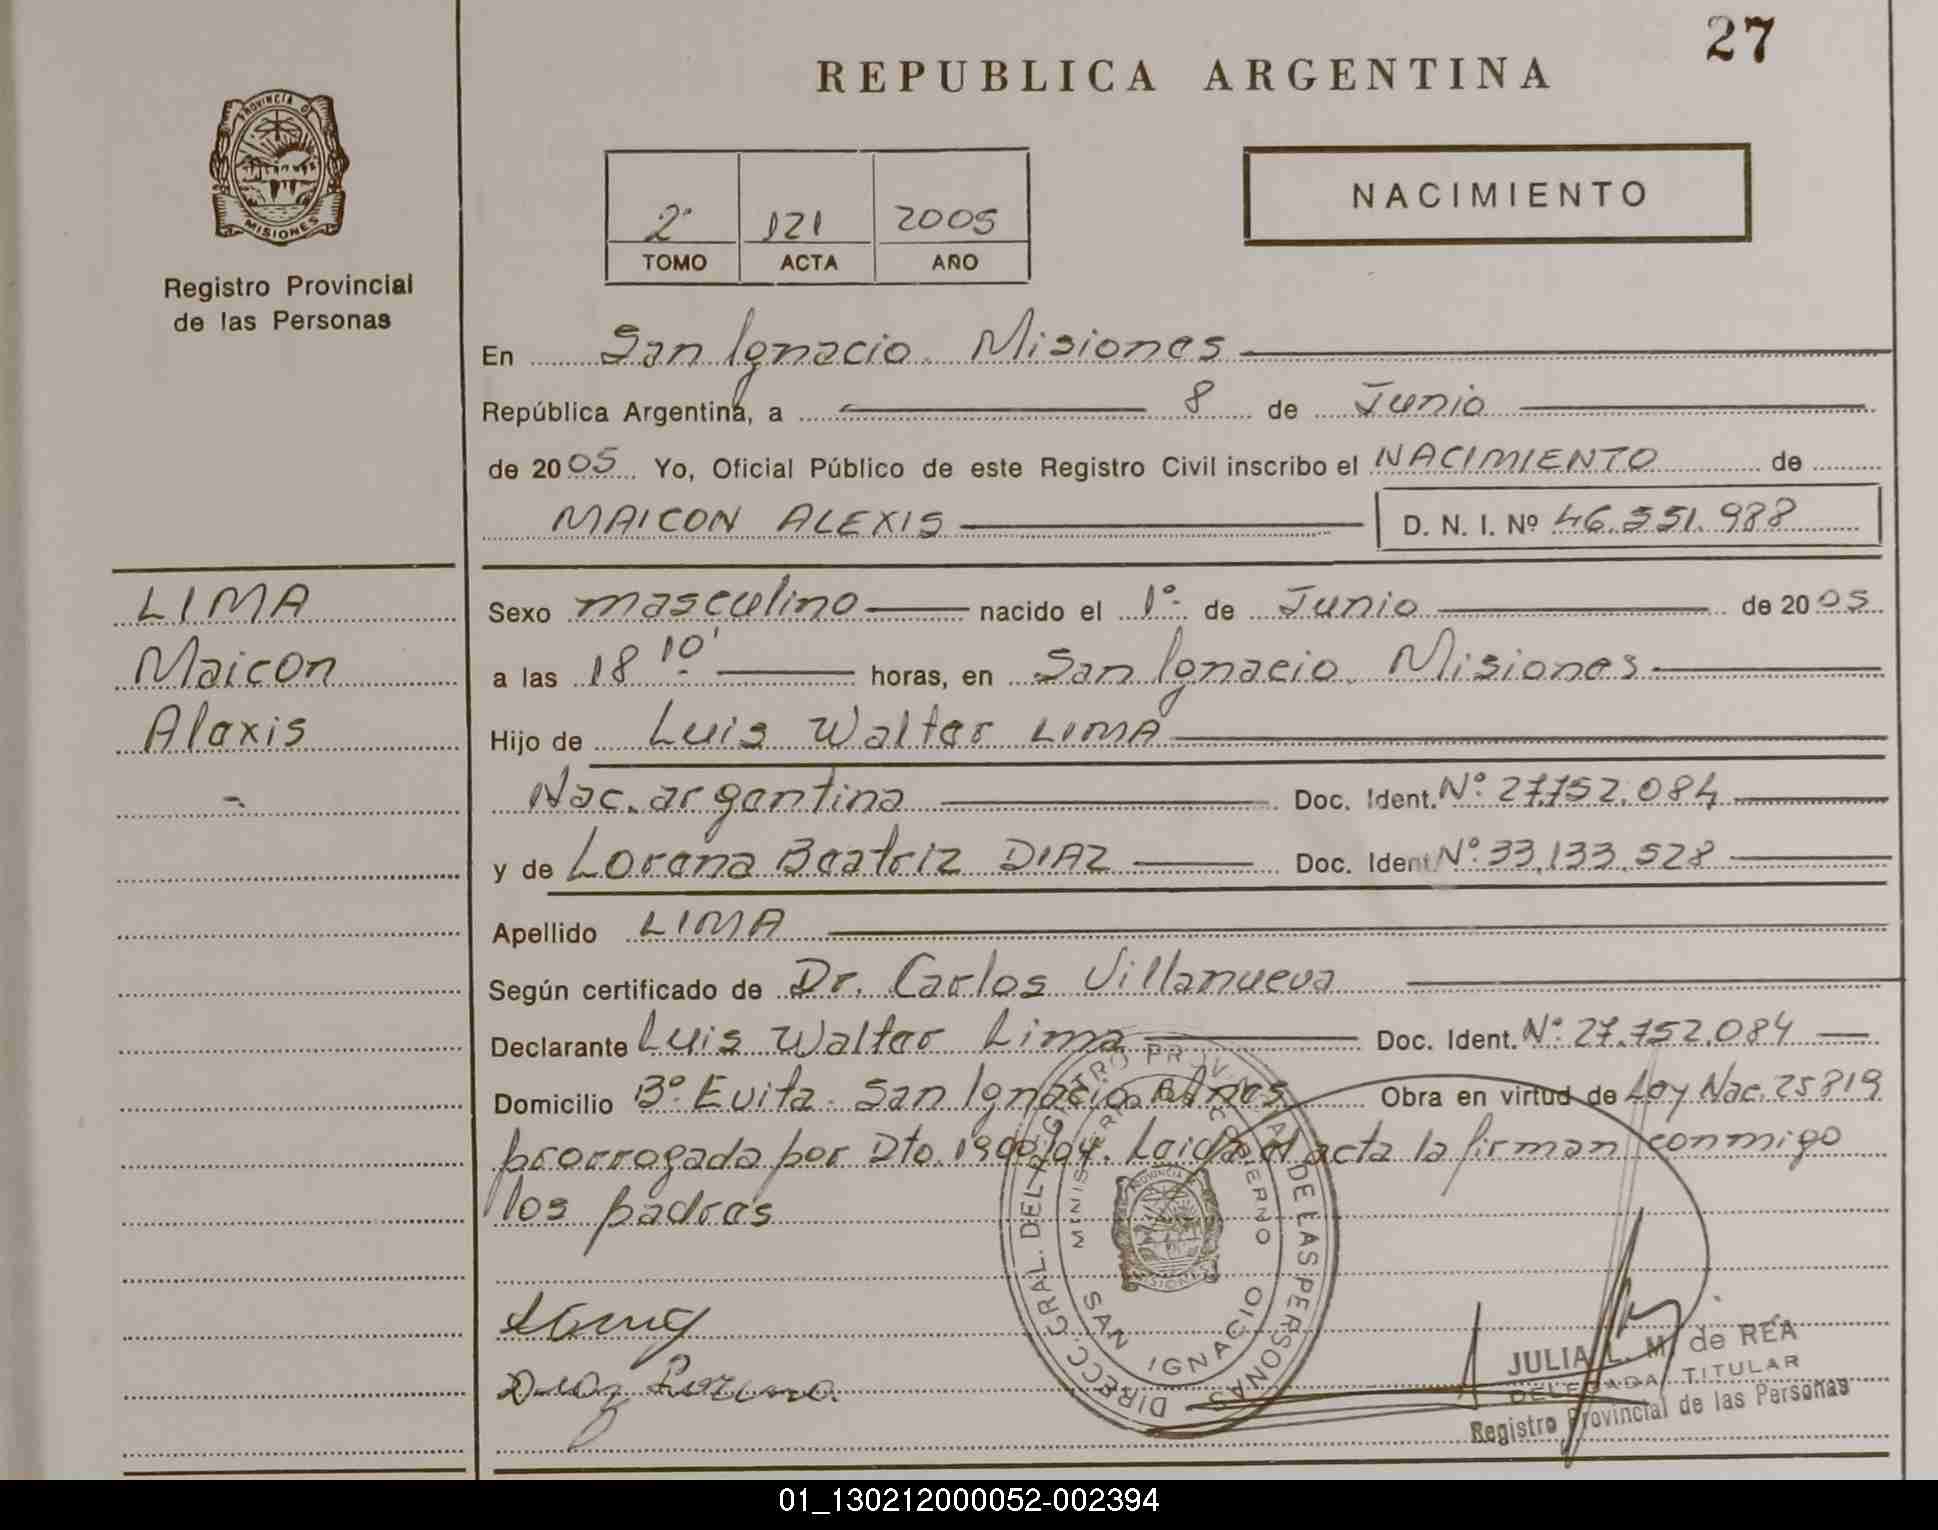 27
REPUBLICA ARGENTINA
PROVINCIA DE MISIONES
Registro Provincial
de las Personas
2º 121 2005
TOMO ACTA AÑO
NACIMIENTO
En San Ignacio. Misiones
República Argentina, a 8 de Junio
de 2005 Yo, Oficial Público de este Registro Civil inscribo el NACIMIENTO de
MAICON ALEXIS D. N. I. Nº 46.551.988
LIMA
Maicon
Alexis
Sexo masculino nacido el 1º de Junio de 2005
a las 18 10' horas, en San Ignacio. Misiones
Hijo de Luis Walter LIMA
Nac. argentina Doc. Ident. Nº 27.752.084
y de Lorena Beatriz DIAZ Doc. Ident Nº 33.133.528
Apellido LIMA
Según certificado de Dr. Carlos Villanueva
Declarante Luis Walter Lima Doc. Ident. Nº 27.752.084
Domicilio Bº Evita. San Ignacio. Mnes Obra en virtud de Ley Nac. 25819
prorrogada por Dto. 1900/04. Leida el acta la firman conmigo
los padres
DIRECC. GRAL. DEL REGISTRO PROVINCIAL DE LAS PERSONAS
MINISTERIO DE GOBIERNO
SAN IGNACIO
MISIONES
Diaz Lorena.
JULIA L. M. de REA
DELEGADA TITULAR
Registro Provincial de las Personas
01_130212000052-002394